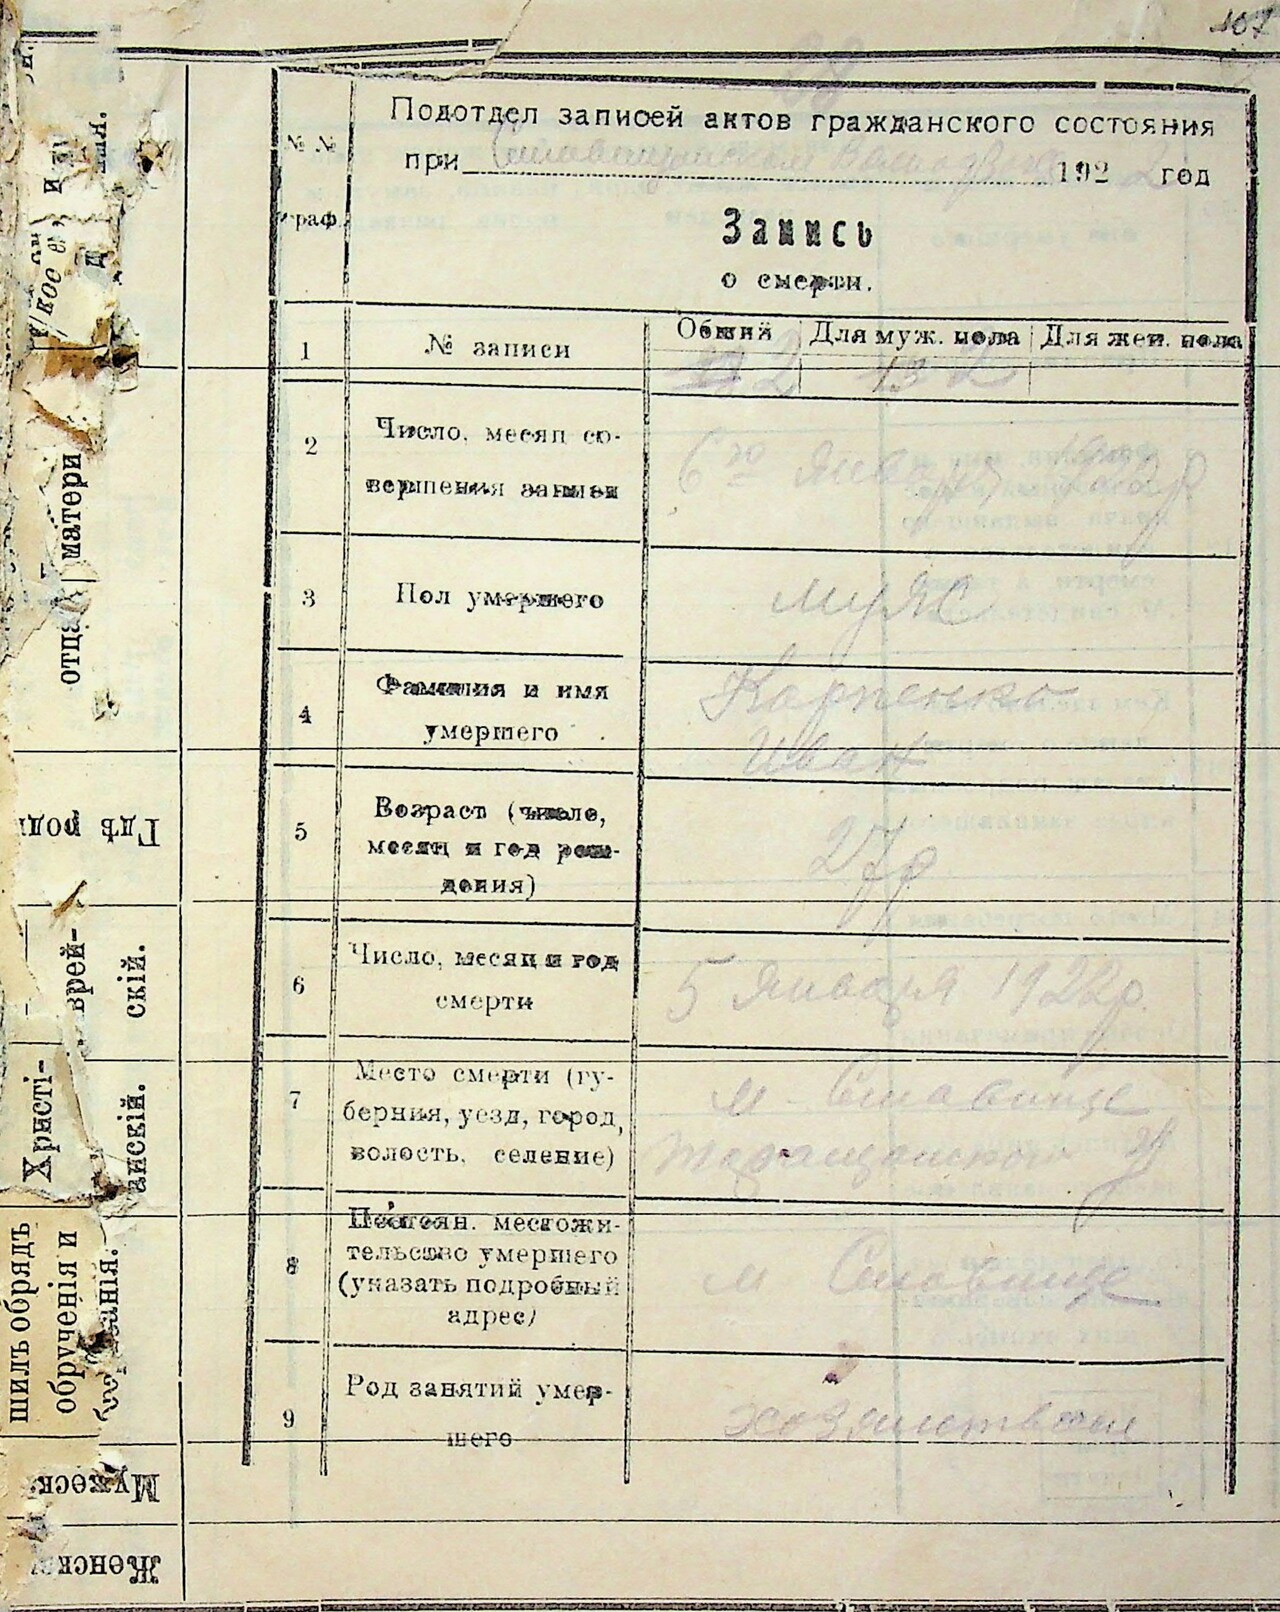 107
Подотдел записей актов гражданского состояния
при 1922 год
№ №
граф.
Запись
о смерти.
1
№ записи
Общий
Для муж. пола
Для жен. пола
2
13 2
2
Число, месяц со-
вершения записи
6го Января 1922 р
3
Пол умершего
муж
4
Фамилия и имя
умершего
Карпенко
Иван
5
Возраст (число,
месяц и год рож-
дения)
27 р
6
Число, месяц и год
смерти
5 января 1922 р.
7
Место смерти (гу-
берния, уезд, город,
волость, селение)
м. Ставище
Таращанского у
8
Постоян. местожи-
тельство умершего
(указать подробный
адрес)
м Ставище
9
Род занятий умер-
шего
хозяйством
отца
матери
Гдѣ роди
врей-
скій.
Христі-
анскій.
шилъ обрядъ
обрученія и
Мужеск.
Женск